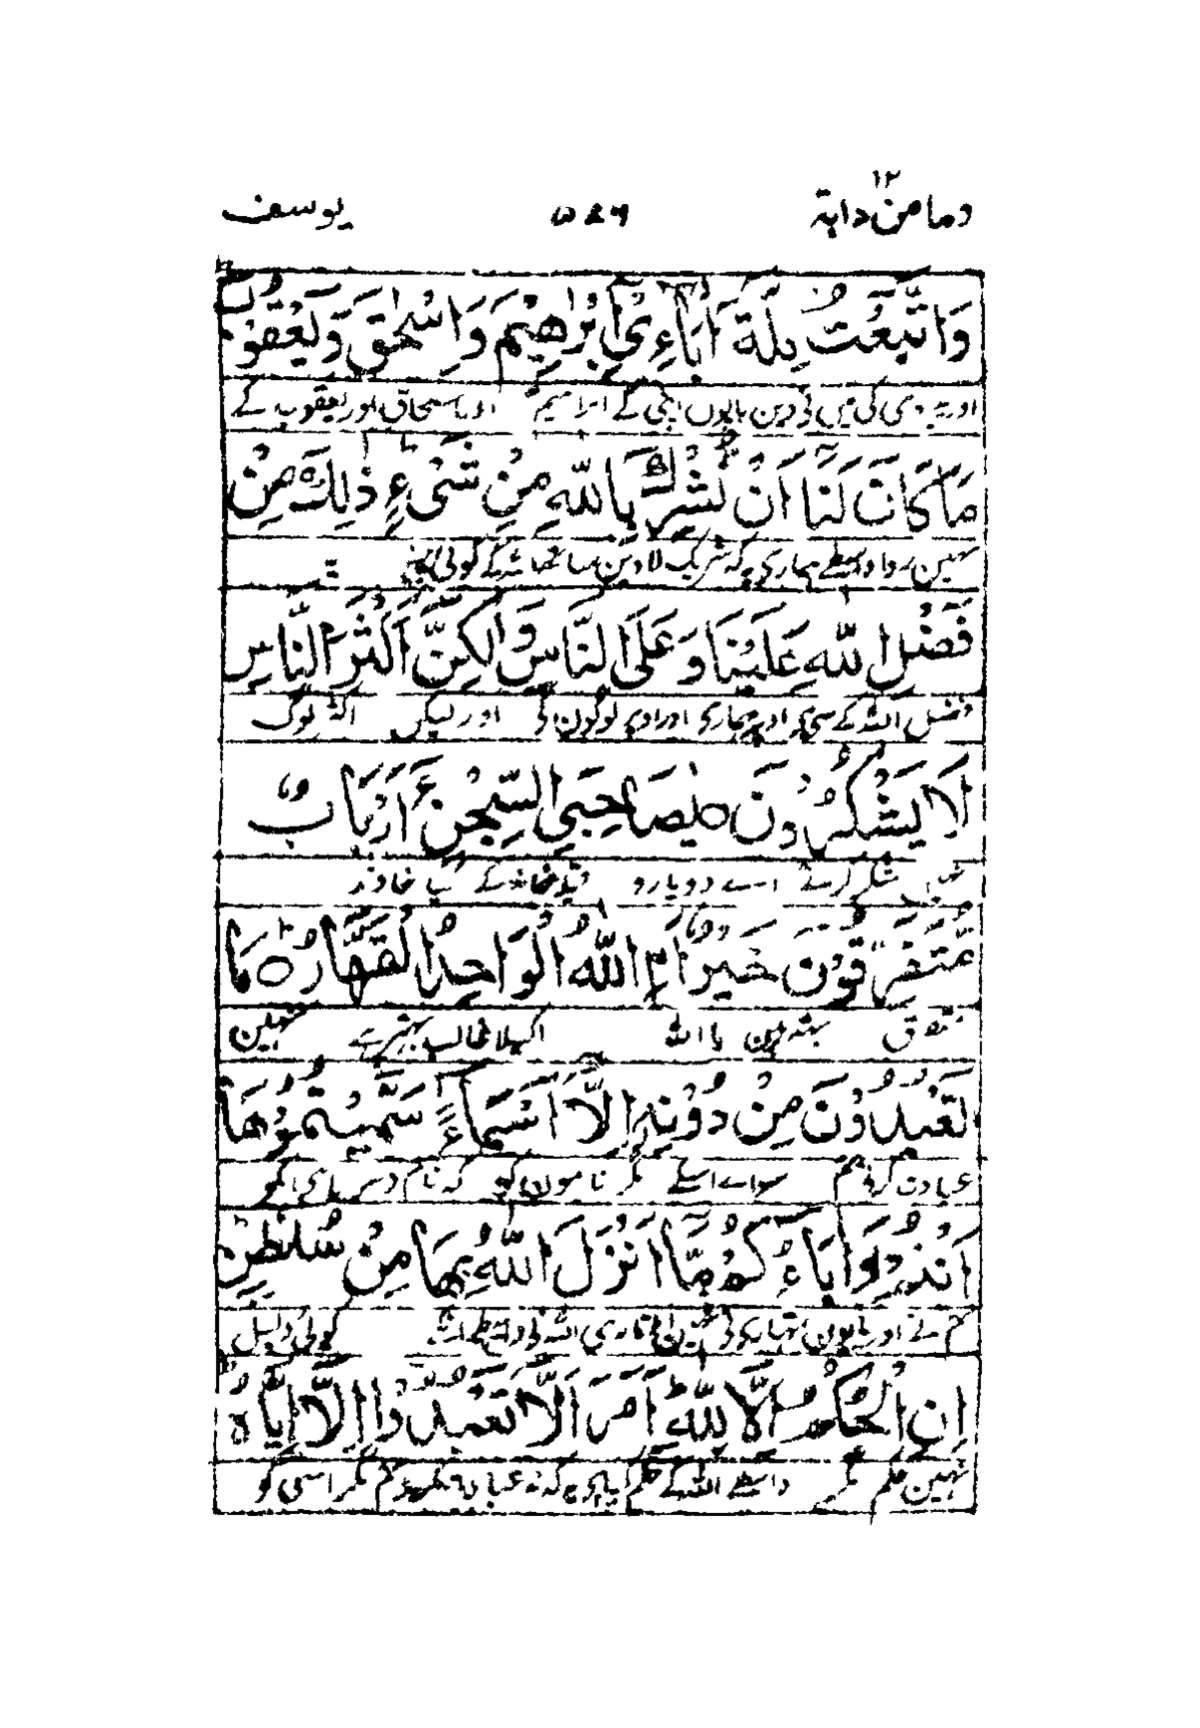 وما من دابة ۱۲ ۵۴۶ یوسف
وَاتَّبَعْتُ مِلَّةَ اٰبَآءِيْٓ اِبْرٰهِيْمَ وَاِسْحٰقَ وَيَعْقُوْبَ
اور پیروی کی میں نے دین باپوں اپنی کے ابراہیم اور اسحاق اور یعقوب کے
مَا كَانَ لَنَآ اَنْ نُّشْرِكَ بِاللّٰهِ مِنْ شَيْءٍ ذٰلِكَ مِنْ
نہین روا واسطے ہماری یہ کہ شریک لاوین ساتھ اللہ کے کوئی
فَضْلِ اللّٰهِ عَلَيْنَا وَعَلَى النَّاسِ وَلٰكِنَّ اَكْثَرَ النَّاسِ
فضل اللہ کے سے اوپر ہماری اور اوپر لوگون کی اور لیکن اکثر لوگ
لَا يَشْكُرُوْنَ ۝ يٰصَاحِبَيِ السِّجْنِ ءَاَرْبَابٌ
نہین شکر کرتے اے دو یارو قید خانہ کے کیا خاوند
مُّتَفَرِّقُوْنَ خَيْرٌ اَمِ اللّٰهُ الْوَاحِدُ الْقَهَّارُ ۝ مَا
متفرق بہتر ہین یا اللہ اکیلا غالب بہتر ہے نہین
تَعْبُدُوْنَ مِنْ دُوْنِهٖٓ اِلَّآ اَسْمَآءً سَمَّيْتُمُوْهَآ
عبادت کرتے ہم سواے اسکے مگر نامون کو کہ نام
اَنْتُمْ وَاٰبَآؤُكُمْ مَّآ اَنْزَلَ اللّٰهُ بِهَا مِنْ سُلْطٰنٍ
تم نے اور باپون تمہاری نے نہین اتاری اللہ نی واسطے کوئی دلیل
اِنِ الْحُكْمُ اِلَّا لِلّٰهِ اَمَرَ اَلَّا تَعْبُدُوْٓا اِلَّآ اِيَّاهُ
نہین حکم مگر واسطے اللہ کے حکم کیا ہے کہ نہ عبادت کرو تم مگر اسی کو